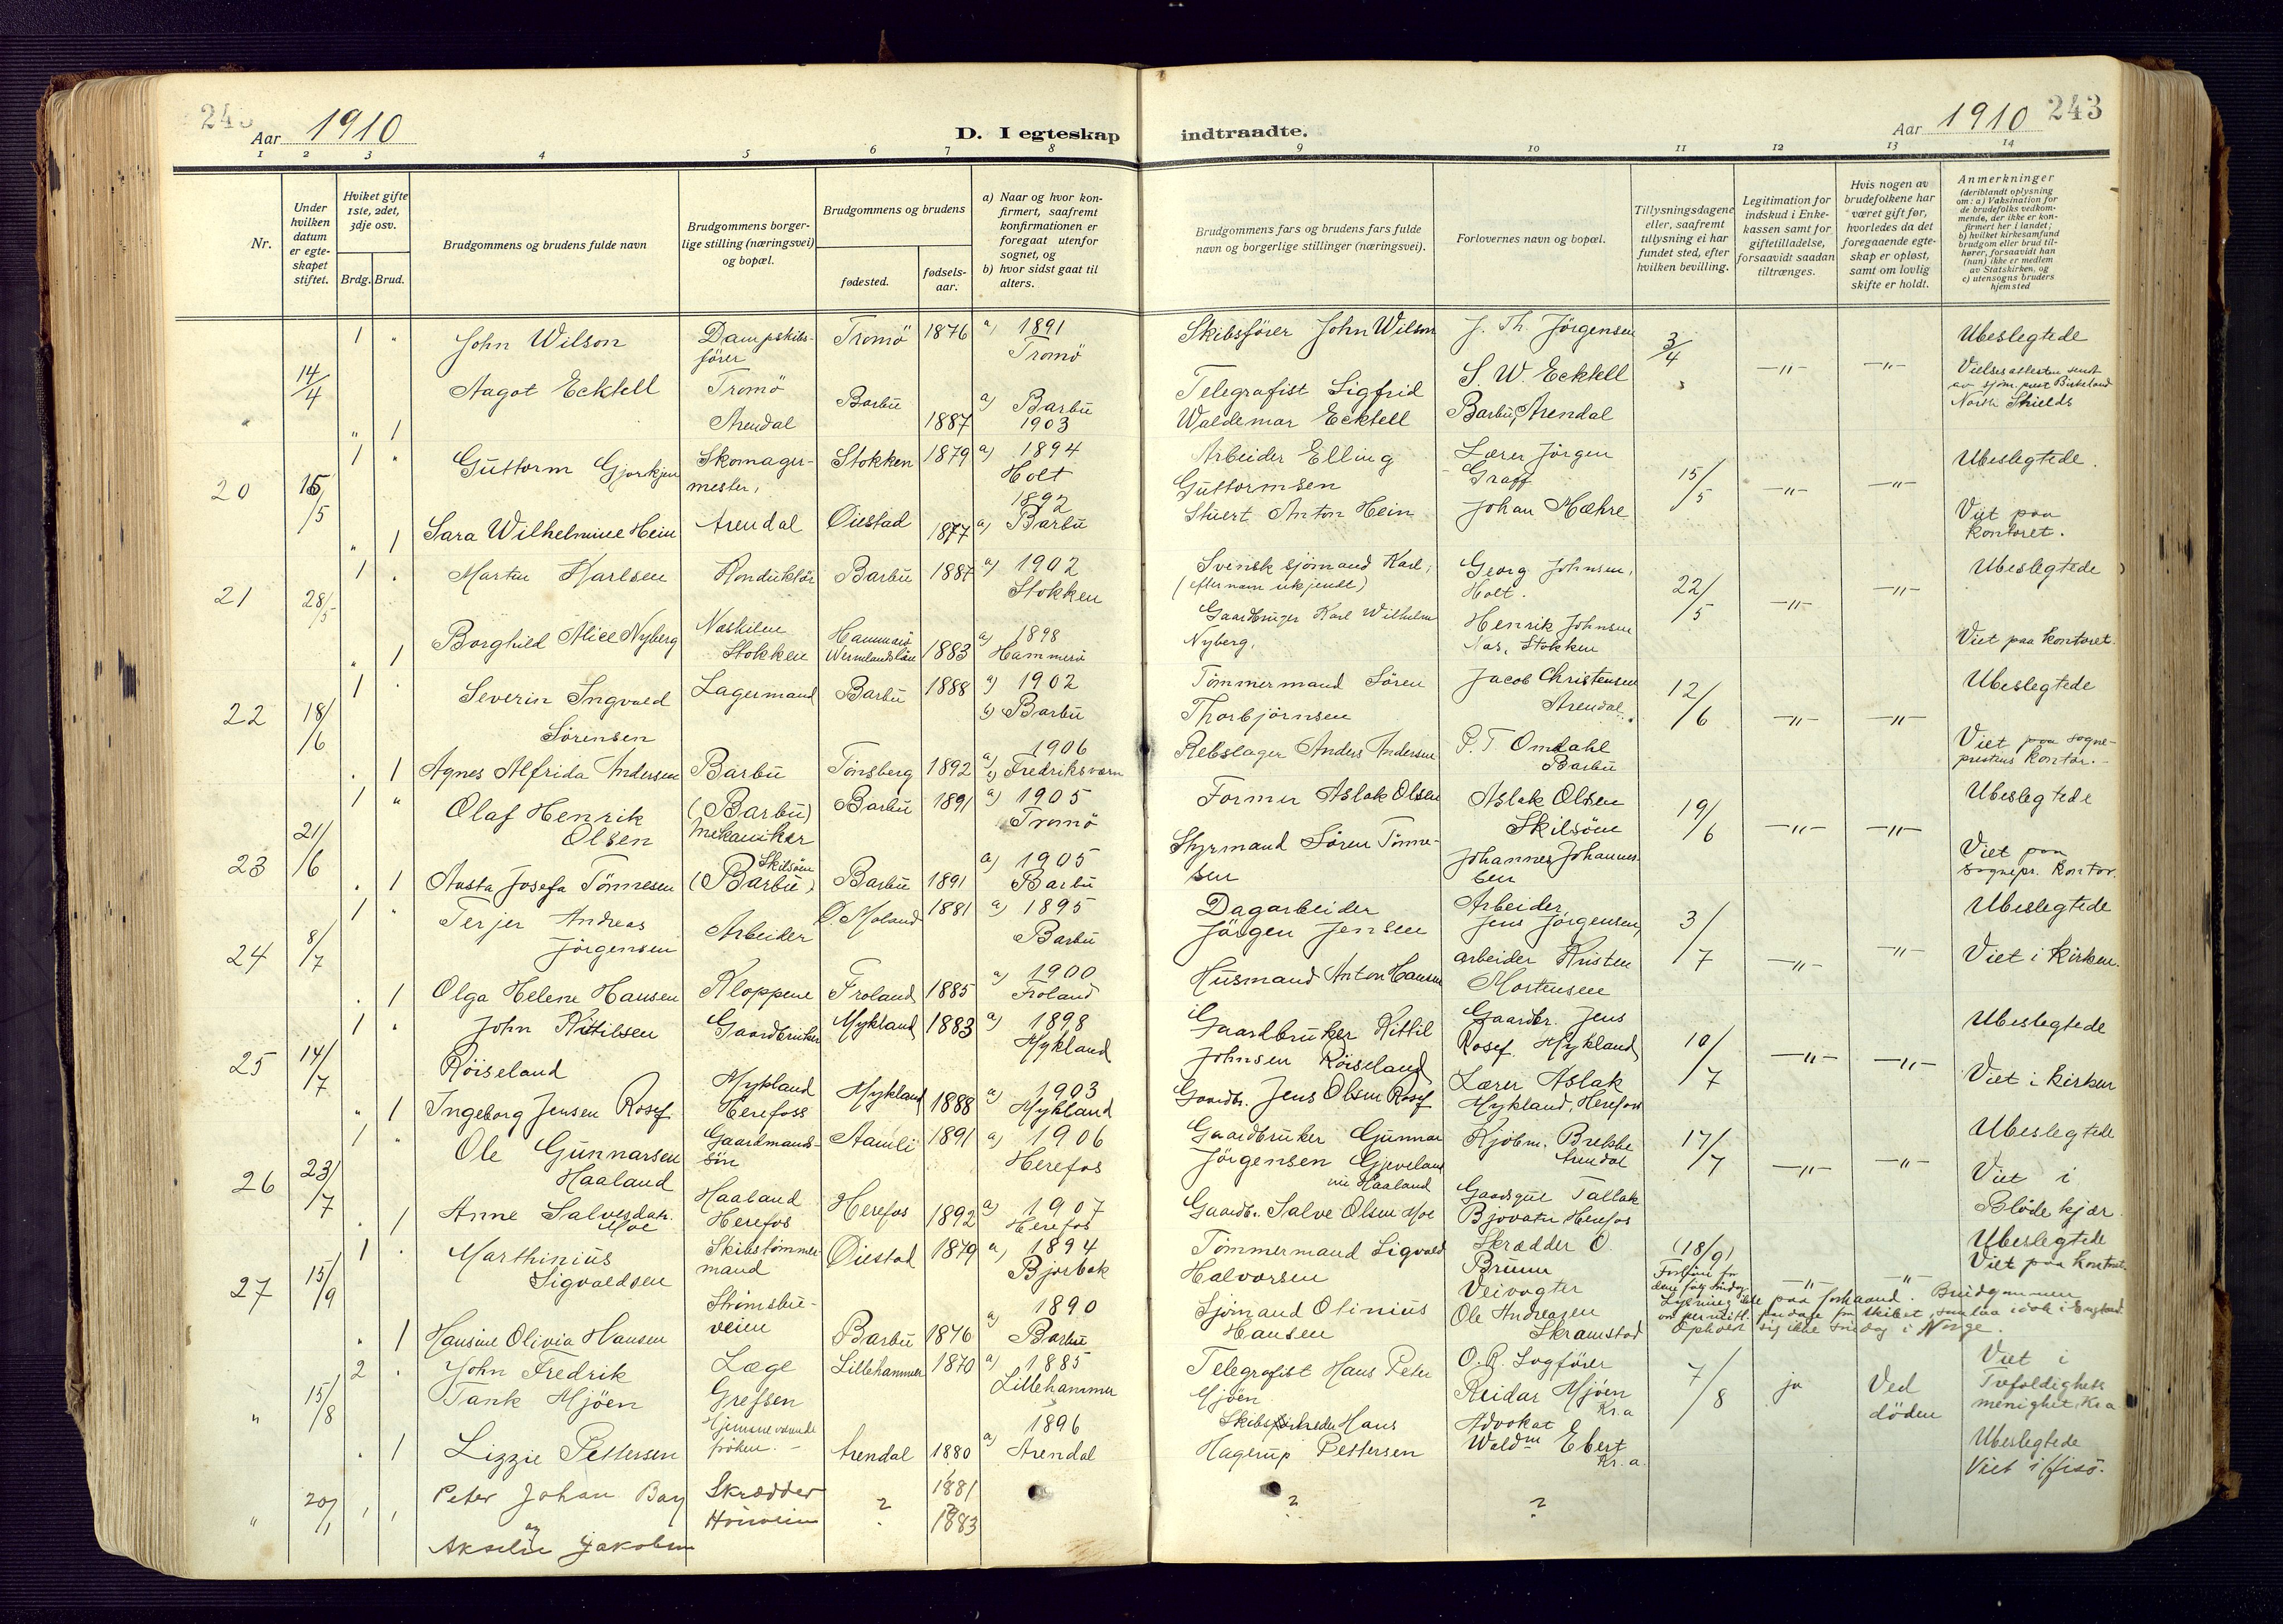 243
Aar 1910
D. I egteskap indtraadte.
Aar 1910 243
1 2 3 4 5 6 7 8 9 10 11 12 13 14
Nr.
Under hvilken datum er egteskapet stiftet.
Hviket gifte 1ste, 2det, 3dje osv.
Brdg. Brud.
Brudgommens og brudens fulde navn
Brudgommens borgerlige stilling (næringsvei) og bopæl.
Brudgommens og brudens
fødested.
fødselsaar.
a) Naar og hvor konfirmert, saafremt konfirmationen er foregaat utenfor sognet, og
b) hvor sidst gaat til alters.
Brudgommens fars og brudens fars fulde navn og borgerlige stillinger (næringsvei).
Forlovernes navn og bopæl.
Tillysningsdagene eller, saafremt tillysning ei har fundet sted, efter hvilken bevilling.
Legitimation for indskud i Enkekassen samt for giftetilladelse, forsaavidt saadan tiltrænges.
Hvis nogen av brudefolkene har været gift før, hvorledes da det foregaaende egteskap er opløst, samt om lovlig skifte er holdt.
Anmerkninger
(deriblandt oplysning om: a) Vaksination for de brudefolks vedkommende, der ikke er konfirmert her i landet;
b) hvilket kirkesamfund brudgom eller brud tilhører, forsaavidt han (hun) ikke er medlem av Statskirken, og
c) utensogns bruders hjemsted
" 14/4 1 " John Wilson Dampskibsfører Tromö 1876 a) 1891 Tromö Skibsfører John Wilson J. Th. Jörgensen 3/4 -"- -"- Ubeslegtede
" 1 Aagot Ecktell Tromö Arendal Barbu 1887 a) Barbu 1903 Telegrafist Sigfrid Waldemar Ecktell S. W. Ecktell Barbu, Arendal Vielsesattesten sendt av sjøm. prest North Shields
20 15/5 1 " Guttorm Skomagermester, Stokken 1879 a) 1894 Holt Arbeider Elling Guttormsen Lærer Jörgen Graff 15/5 -"- -"- Ubeslegtede.
" 1 Sara Wilhelmine Hein Arendal Öiestad 1877 a) 1892 Barbu Stuert Anton Hein Johan Mæhre Viet paa kontoret.
21 28/5 1 " Martin Karlsen Konduktör Barbu 1887 a) 1902 Stokken Svensk sjömand Karl, (efternavn ukjendt) Georg Johnsen, Holt. 22/5 -"- -"- Ubeslegtede
" 1 Borghild Alice Nyberg Naskilen Stokken Hammarö Wermlandslän 1883 a) 1898 Hammerö Gaardbruger Karl Wilhelm Nyberg. Henrik Johnsen Nas, Stokken Viet paa kontoret.
22 18/6 1 " Severin Ingvald Sörensen Lagermand Barbu 1888 a) 1902 b) Barbu Tömmermand Sören Thorbjörnsen Jacob Christensen Arendal. 12/6 -"- -"- Ubeslegtede
" 1 Agnes Alfrida Andersen Barbu Tönsberg 1892 a) 1906 b) Fredriksværn Rebslager Anders Andersen P. T Omdahl Barbu Viet paa sogneprestens kontor.-
23 21/6 1 " Olaf Henrik Olsen (Barbu) Mekaniker Barbu 1891 a) 1905 Tromö Former Aslak Olsen Aslak Olsen Skilsöen 19/6 -"- -"- Ubeslegtede
" 1 Aasta Josefa Tönnesen Skilsöen (Barbu) Barbu 1891 a) 1905 Barbu Styrmand Sören Tönnesen Johannes Johannessen Viet paa sognepr. kontor.
24 8/7 1 " Terjer Andreas Jörgensen Arbeider Ö. Moland 1881 a) 1895 Barbu Dagarbeider Jörgen Jensen Arbeider Jens Jörgensen, 3/7 -"- -"- Ubeslegtede
" 1 Olga Helene Hansen Kloppene Froland 1885 a) 1900 Froland Husmand Anton Hansen arbeider Kristen Mortensen Viet i kirken.
25 14/7 1 " John Kittilsen Röiseland Gaardbruker Mykland 1883 a) 1898 Mykland Gaardbruker Kittil Johnsen Röiseland Gaardbr. Jens Rosef. Mykland, 10/7 -"- -"- Ubeslegtede
" 1 Ingeborg Jensen Rosef. Mykland Herefoss Mykland 1888 a) 1903 Mykland Gaardbr. Jens Olsen Rosef Lærer Aslak Mykland, Herefos Viet i kirken
26 23/7 1 " Ole Gunnarsen Haaland Gaardmandssön Aamli 1891 a) 1906 Herefos Gaardbruker Gunnar Jörgensen Gjeveland nu Haaland Kjöbm. Brekke Arendal 17/7 -"- -"- Ubeslegtede
" 1 Anne Salvesdatr. Moe Haaland Herefos Herefos 1892 a) 1907 Herefos Gaardbr. Salve Olsen Moe Gaardsgut Tallak Bjovatn Herefos Viet i Blödekjær
27 15/9 1 " Marthinius Sigvaldsen Skibstömmermand Öiestad 1879 a) 1894 Bjorbæk Tömmermand Sigvald Halvorsen Skrædder O. Bruun (18/9) -"- -"- Ubeslegtede Viet paa kontoret
" 1 Hansine Olivia Hansen Strömsbuveien Barbu 1876 a) 1890 Barbu Sjömand Olinius Hansen Veivogter Ole Andreasen Skramstad Lysning ikke paa forhaand. Brudgommen om permitt. fra skibet, som laa i dok i England. Opholdt sig ikke söndag i Norge.
" 15/8 2 " John Fredrik Tank Mjöen Læge Grefsen Lillehammer 1870 a) 1885 Lillehammer Telegrafist Hans Peter Mjöen O.R. Sagförer Reidar Mjöen Kr.a 7/8 ja Ved döden Viet i Trefoldighets menighet, Kr.a
" 1 Lizzie Pettersen Hjemmeværende fröken. - Arendal 1880 a) 1896 Arendal Hans Hagerup Pettersen Advokat Waldm Ebert Kr.a. Ubeslegtede
" 20/1 , , Peter Johan Bay Skrædder ? 1881 ? ?
og Jakobsen 1883